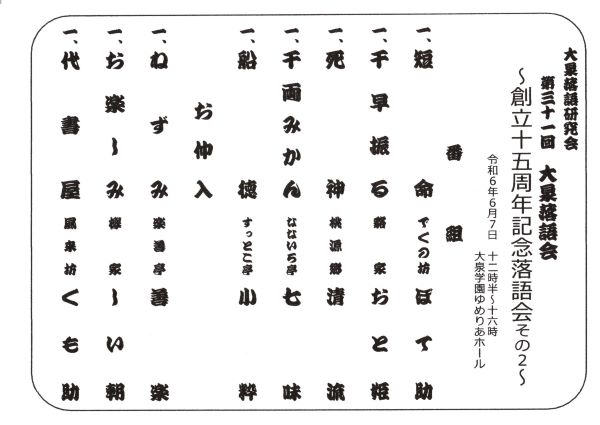 大泉落語研究会
第三十一回 大泉落語会
～創立十五周年記念落語会その２～
令和６年６月７日 十二時半～十六時
大泉学園ゆめりあホール
番組
一、短命 でくの坊 ぼて助
一、千早振る 新家 おと姫
一、死神 桃源郷 清流
一、千両みかん なないろ亭 七味
一、船徳 すっとこ亭 小粋
お仲入
一、ねずみ 楽善亭 善楽
一、お楽～み 家～い朝
一、代書屋 風来坊 くも助